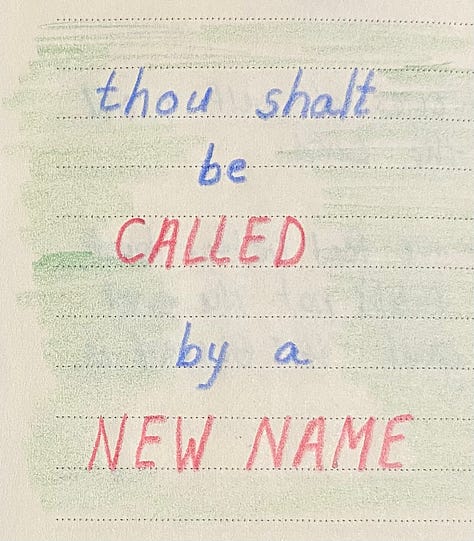 thou shalt
be
CALLED
by a
NEW NAME